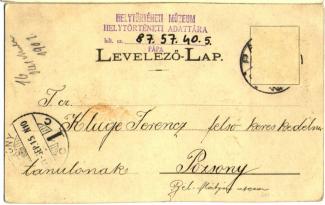 HELYTÖRTÉNETI MÚZEUM
HELYTÖRTÉNETI ADATTÁRA
ltt. sz. 87.57.40.5.
PÁPA
LEVELEZŐ-LAP.
T. cz.
Kluge Ferencz felső kereskedelmi
tanulonak Pozsony